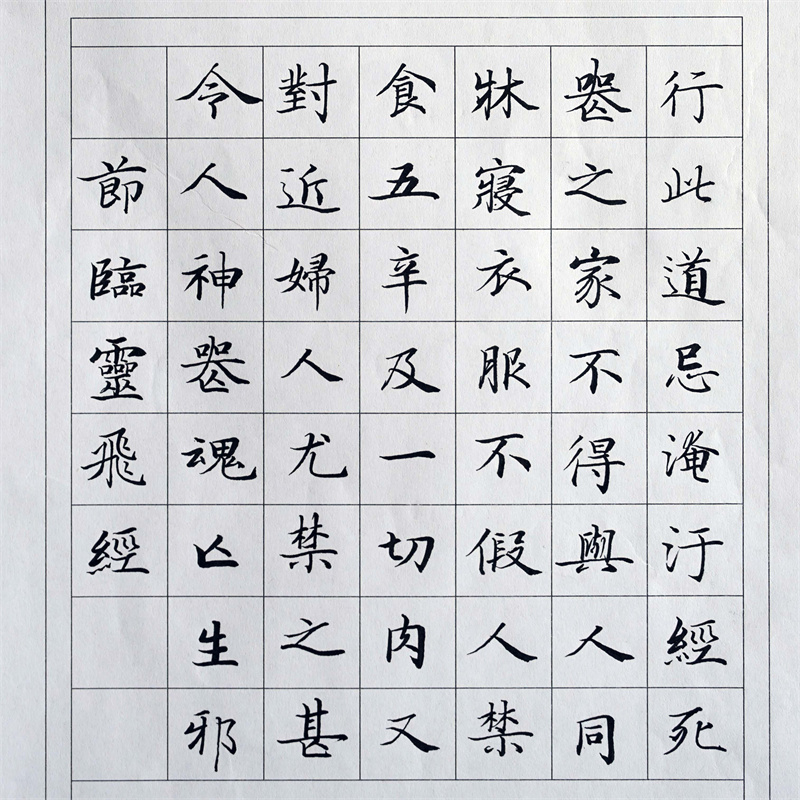 行此道忌淹汙經死
喪之家不得與人同
牀寢衣服不假人禁
食五辛及一切肉又
對近婦人尤禁之甚
令人神喪魂亾生邪
節臨靈飛經